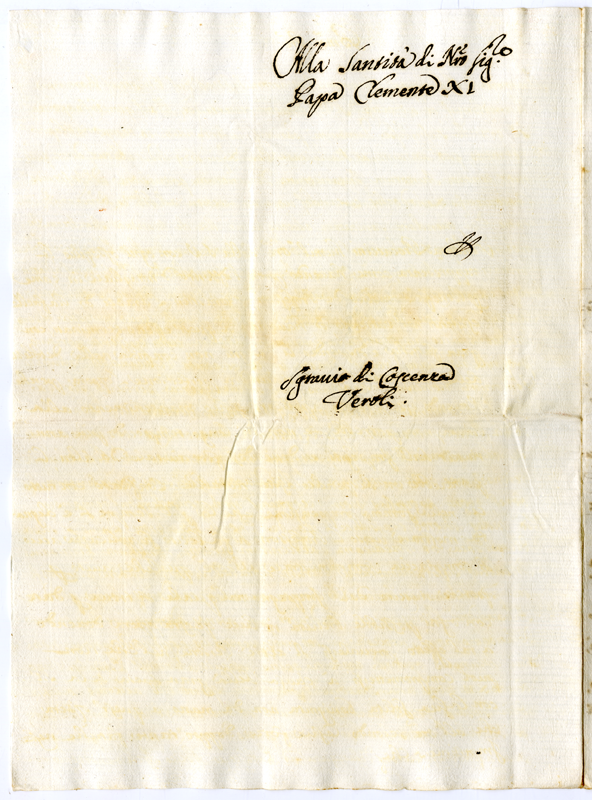 Alla Santità di Nro Sig.re
Papa Clemente XI
Sgravio di Coscenza
Veroli.